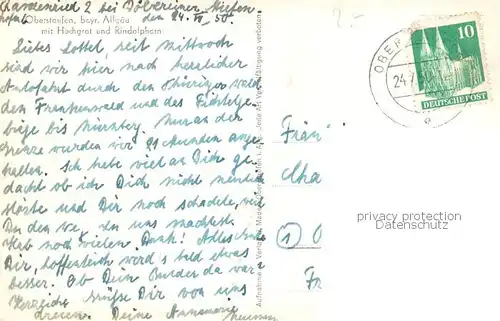 Zandenried 2 bei
den 24. VI. 50.
Oberstaufen, bayr. Allgäu
mit Hochgrat und Rindalphorn
Liebes Lottel, seit Mittwoch
sind wir hier nach herrlicher
Autofahrt durch den Thüringer Wald
den Frankenwald und das Fichtelge-
birge bis Nürnberg. Nur an der
Grenze wurden wir Stunden ange-
halten. Ich habe viel an Dich ge-
dacht ob ich Dich nicht neulich
störte und Dir noch schadete, weil
Du den we zu uns machtest.
Hab noch vielen Dank! Alles Gute
Dir, hoffentlich wird's bald etwas
besser. Ob Dein Bruder da war?
Verzeihe Grüße Dir von uns
dreien. Deine Annemarie
Aufnahme u. Verlag
Jede Art Vervielfältigung verboten
2.-
OBER
24.7
10
DEUTSCHE POST
Fräu
Cha
1
Fr
privacy protection
Datenschutz